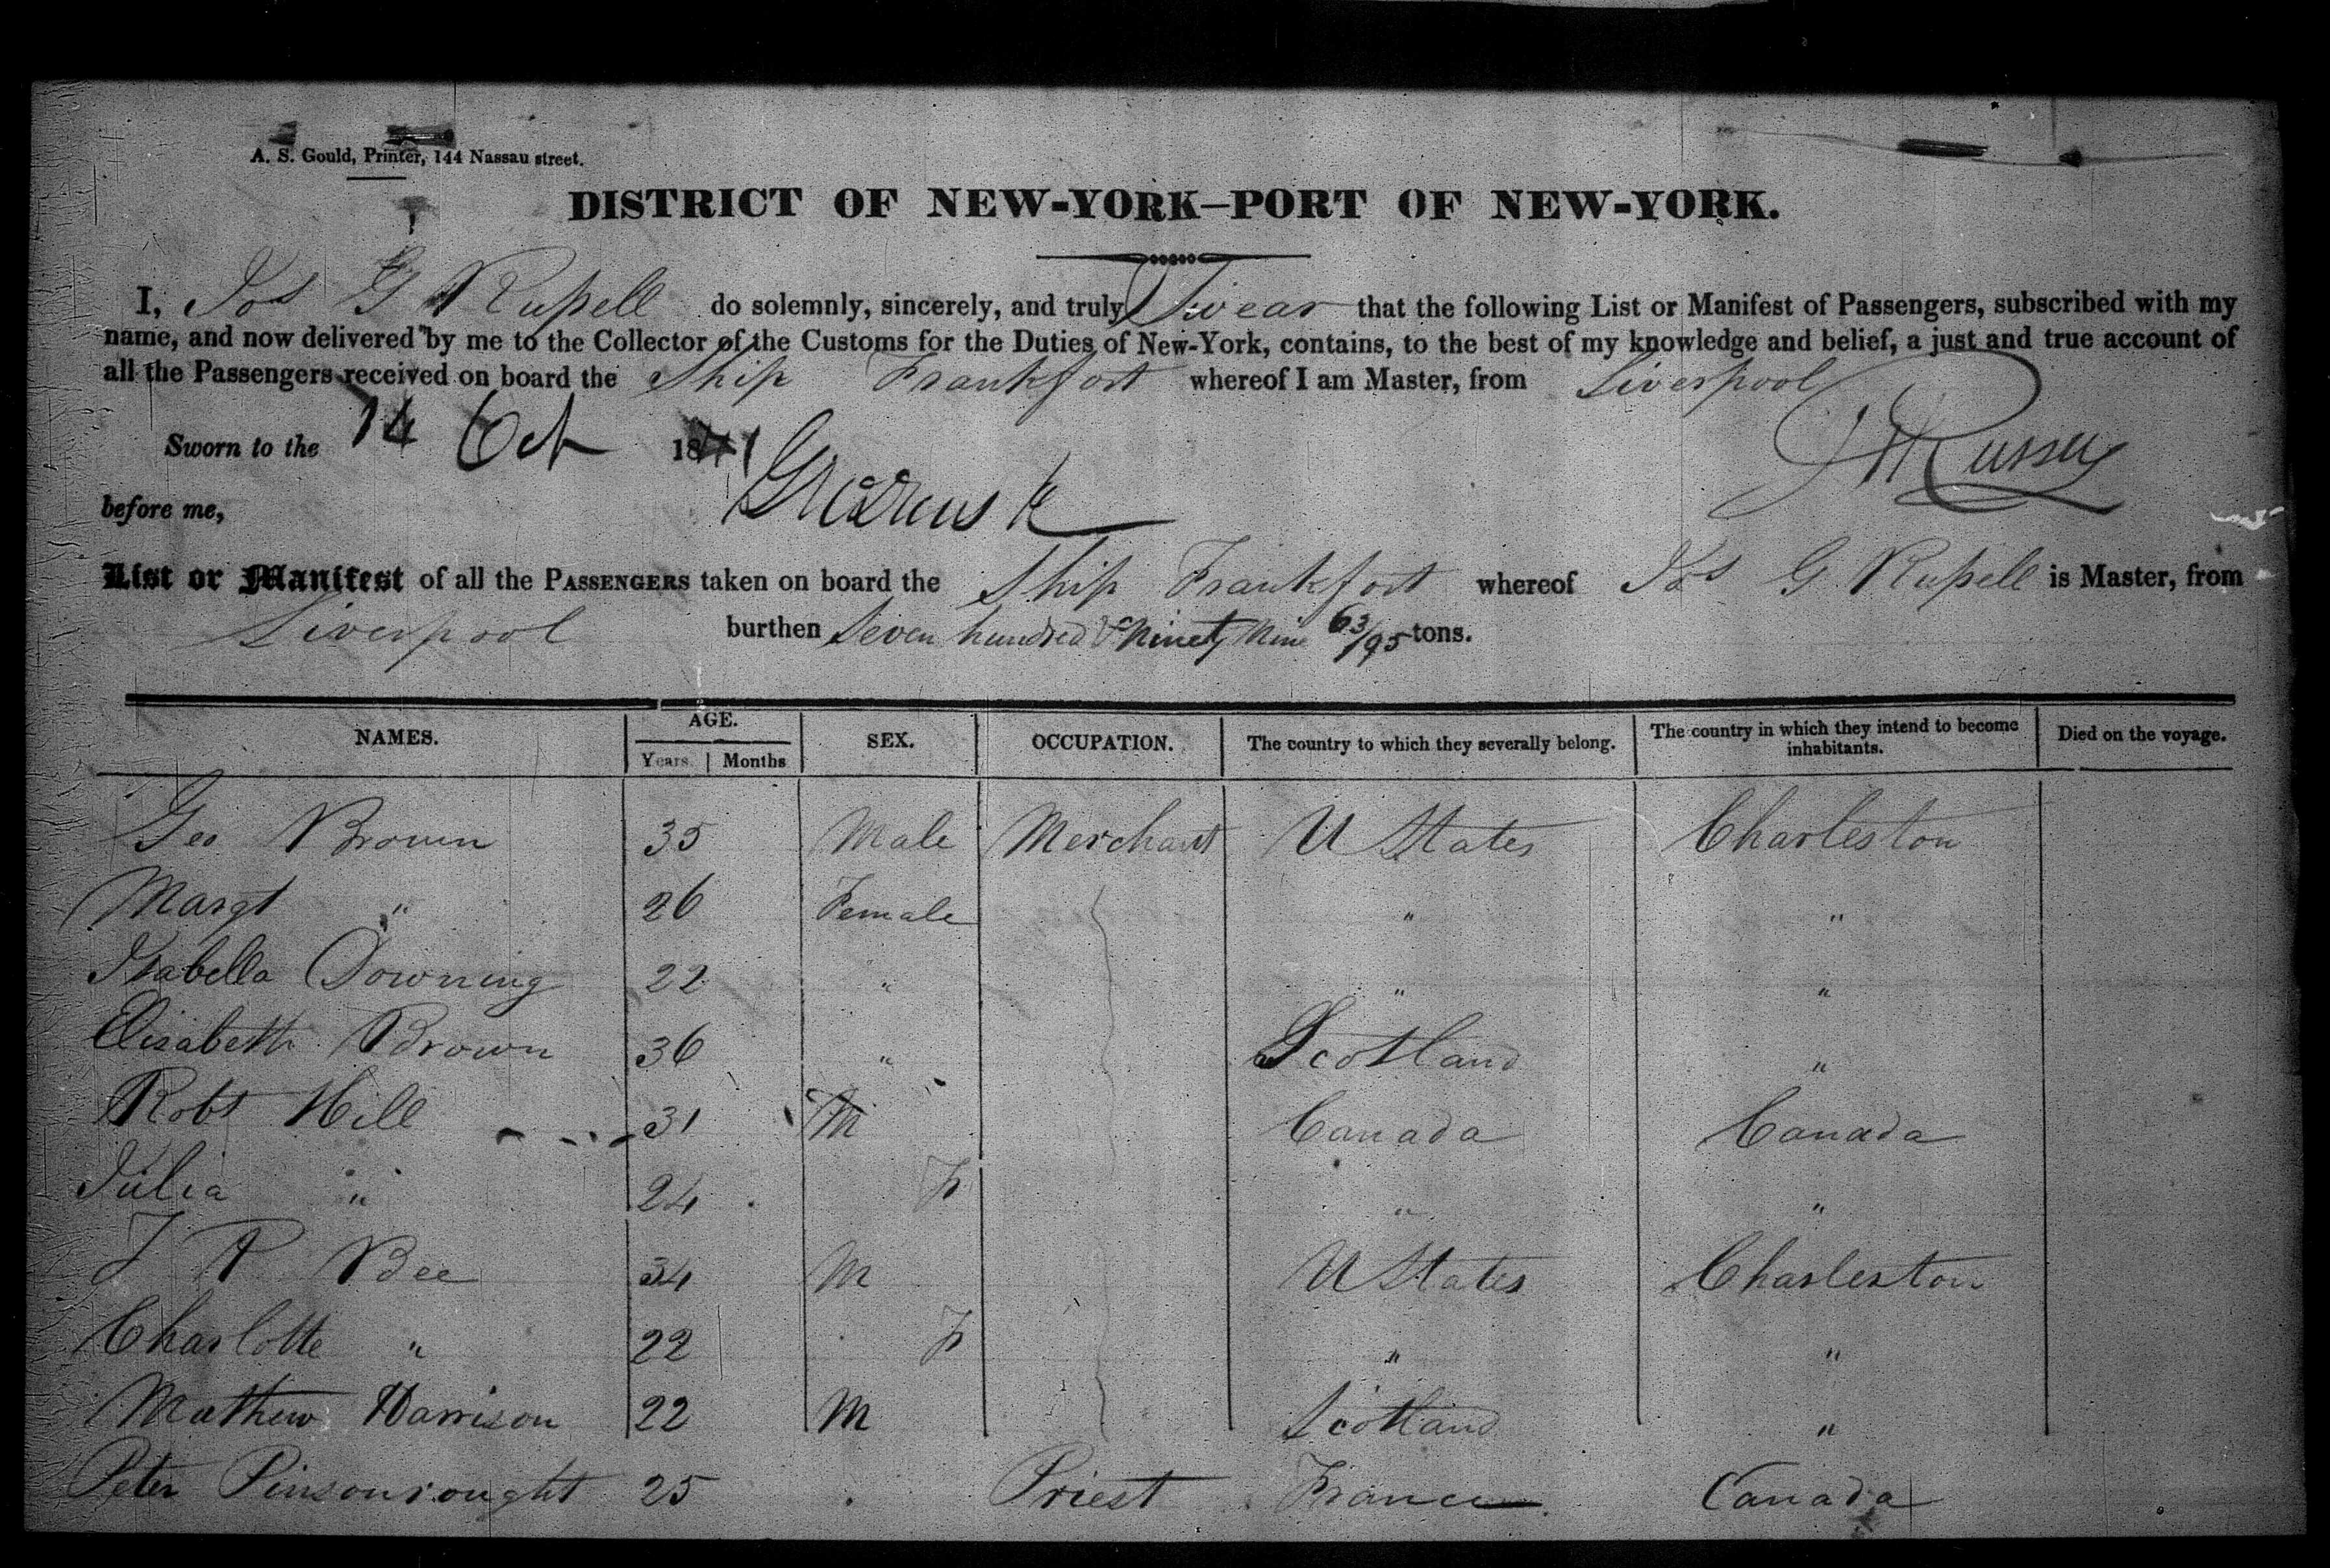 A. S. Gould, Printer, 144 Nassau street.
DISTRICT OF NEW-YORK—PORT OF NEW-YORK.
I, Jos G Russell do solemnly, sincerely, and truly Swear that the following List or Manifest of Passengers, subscribed with my
name, and now delivered by me to the Collector of the Customs for the Duties of New-York, contains, to the best of my knowledge and belief, a just and true account of
all the Passengers received on board the Ship Frankfort whereof I am Master, from Liverpool
Sworn to the 14 Oct 1841
Russell
before me,
List or Manifest of all the PASSENGERS taken on board the Ship Frankfort whereof Jos G Russell is Master, from
Liverpool burthen Seven hundred & Ninety Nine 63/95 tons.
NAMES. AGE. SEX. OCCUPATION. The country to which they severally belong. The country in which they intend to become inhabitants. Died on the voyage.
Years. Months
Geo Brown 35 Male Merchant U States Charleston
Margt " 26 Female " "
Isabella Downing 22 " " "
Elisabeth Brown 36 " Scotland "
Robt Hill 31 M Canada Canada
Julia " 24 F " "
J R Bee 34 M U States Charleston
Charlotte " 22 F " "
Mathew Harrison 22 M Scotland "
Peter 25 Priest France Canada